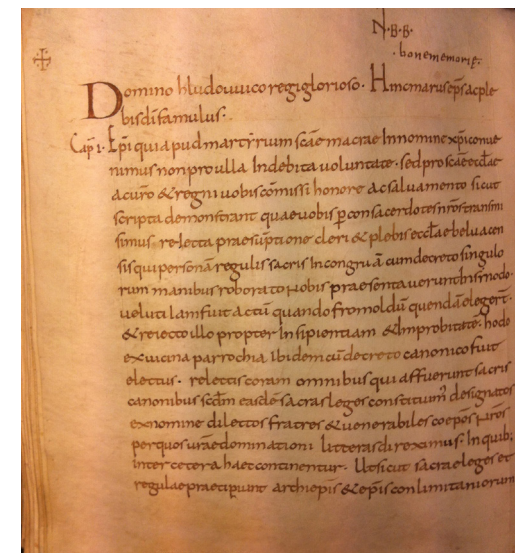 N·B·B·
· bonememorie·
Domino hludouuico regi glorioso· Hincmarus ep̅s ac ple
bis dī famulus·
Cap̅ i· Ep̅i qui apud martyrium sc̅ae macrae In nomine xp̅i conue
nimus non pro ulla Indebita voluntate· sed pro sc̅ae eccl̅ae
ac ur̅o & regni uobis com̅issi honore ac saluamento sicut
scripta demonstrant quae uobis p̱ consacerdotes nr̅os transmi
simus· relecta praesūptione cleri & plebis eccl̅ae beluacen
sis qui personā regulis sacris Incongruā cum decreto singulo
rum manibus roborato uobis praesentauerunt
ueluti Iam fuit actū quando fromoldū quendā elegert̅·
& reiecto illo propter Insipientiam & Improbitatē· hodo
ex uicina parrochia Ibidem cū decreto canonico fuit
electus· relectis coram omnibus qui affuerunt sacris
canonibus sc̅dm easdē sacras leges designatos
ex nomine dilectos fratres & uenerabiles coep̅os ur̅os
per quos ur̅ae dominationi litteras direximus· In quib;
Inter cetera haec continentur· Ut sicut sacrae leges et
regulae praecipiunt archiep̅is & ep̅is conlimitaniorum